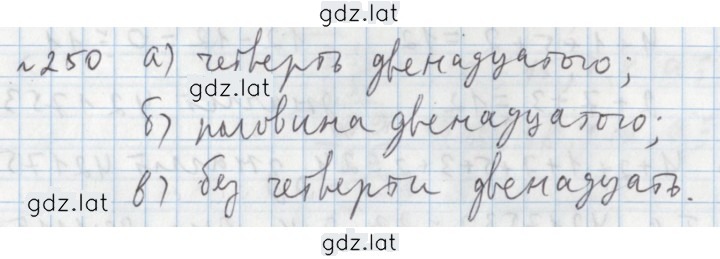 gdz.lat
№250 а) четверть двенадцатого;
gdz.lat
б) половина двенадцатого;
в) без четверти двенадцать.
gdz.lat
gdz.lat